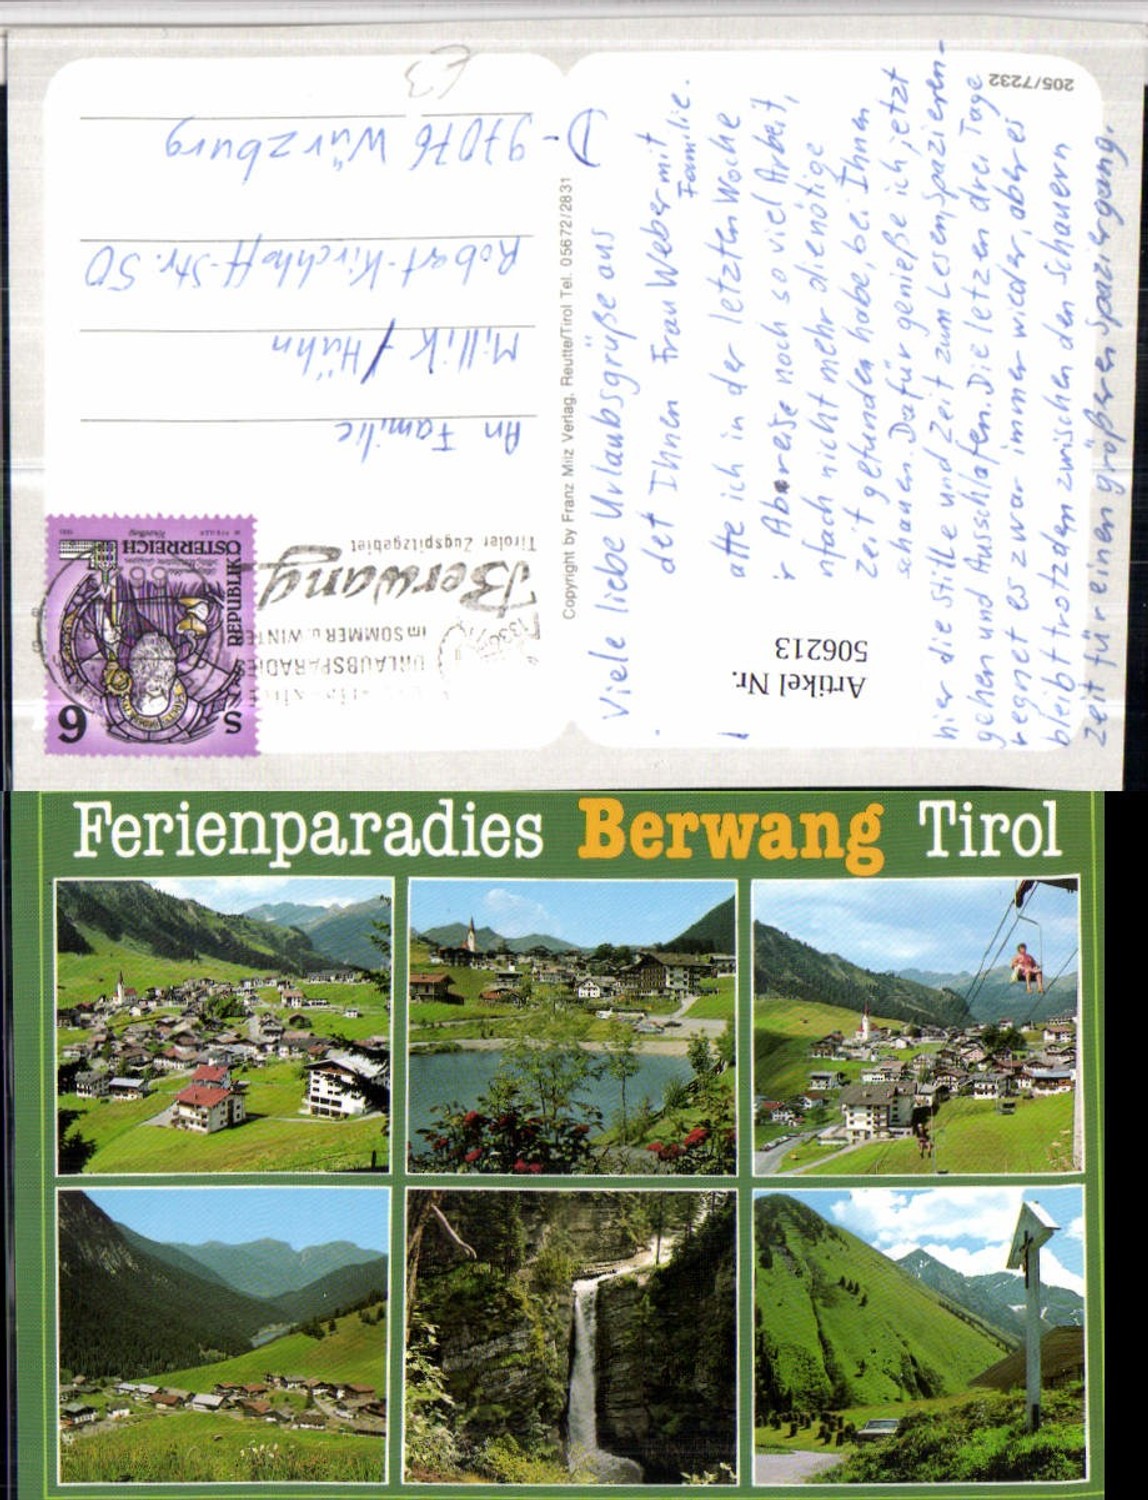 205/7232
Viele liebe Urlaubsgrüße aus
det Ihnen Frau Weber mit
Familie.
atte ich in der letzten Woche
r Abreise noch so viel Arbeit,
nfach nicht mehr die nötige
Zeit gefunden habe, bei Ihnen
schauen. Dafür genieße ich jetzt
hier die Stille und Zeit zum Lesen, Spazieren-
gehen und Ausschlafen. Die letzen drei Tage
regnet es zwar immer wieder, aber es
bleibt trotzdem zwischen den Schauern
Zeit für einen größeren Spaziergang.
Artikel Nr.
506213
Copyright by Franz Milz Verlag, Reutte/Tirol Tel. 05672/2831
URLAUBSPARADIE
im SOMMER u. WINTE
Berwang
Tiroler Zugspitzgebiet
S 6
REPUBLIK
ÖSTERREICH
An Familie
Millik / Hühn
Robert-Kirchhoff-Str. 50
D-97076 Würzburg
€3
Ferienparadies Berwang Tirol